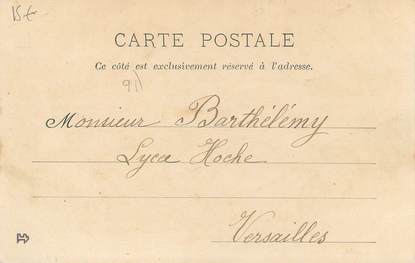 15€
CARTE POSTALE
Ce côté est exclusivement réservé à l'adresse.
91
Monsieur Barthélémy
Lycée Hoche
Versailles